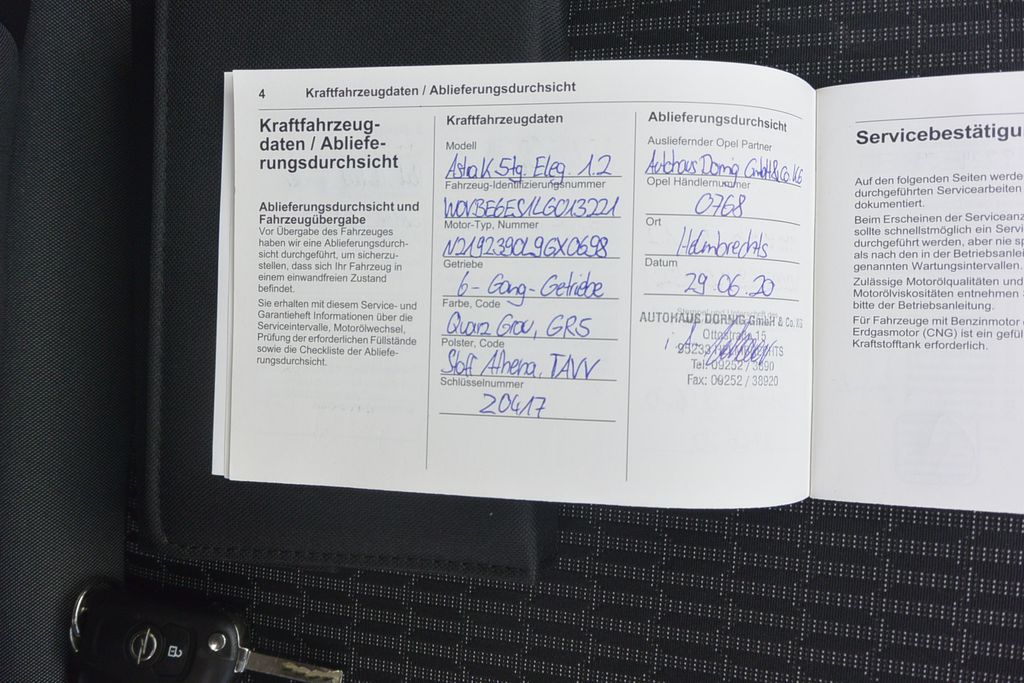 4 Kraftfahrzeugdaten / Ablieferungsdurchsicht
Kraftfahrzeug-
daten / Abliefe-
rungsdurchsicht
Ablieferungsdurchsicht und
Fahrzeugübergabe
Vor Übergabe des Fahrzeuges
haben wir eine Ablieferungsdurch-
sicht durchgeführt, um sicherzu-
stellen, dass sich Ihr Fahrzeug in
einem einwandfreien Zustand
befindet.
Sie erhalten mit diesem Service- und
Garantieheft Informationen über die
Serviceintervalle, Motorölwechsel,
Prüfung der erforderlichen Füllstände
sowie die Checkliste der Abliefe-
rungsdurchsicht.
Kraftfahrzeugdaten
Modell
Astra K 5tg. Eleg. 1.2
Fahrzeug-Identifizierungsnummer
W0VBE6ES1LG013221
Motor-Typ, Nummer
N2192390L9GX0698
Getriebe
6-Gang-Getriebe
Farbe, Code
Quarz Grau, GR5
Polster, Code
Stoff Athena, TAVV
Schlüsselnummer
20417
Ablieferungsdurchsicht
Ausliefernder Opel Partner
Autohaus Dornig GmbH & Co. KG
Opel Händlernummer
0768
Ort
Helmbrechts
Datum
29.06.20
AUTOHAUS DORNIG GmbH & Co. KG
Ottostraße 15
95233
Tel. 09252 / 3890
Fax: 09252 / 38920
Servicebestätigu
Auf den folgenden Seiten werde
durchgeführten Servicearbeiten
dokumentiert.
Beim Erscheinen der Serviceanz
sollte schnellstmöglich ein Servi
durchgeführt werden, aber nie sp
als nach den in der Betriebsanlei
genannten Wartungsintervallen.
Zulässige Motorölqualitäten und
Motorölviskositäten entnehmen
bitte der Betriebsanleitung.
Für Fahrzeuge mit Benzinmotor
Erdgasmotor (CNG) ist ein gefül
Kraftstofftank erforderlich.